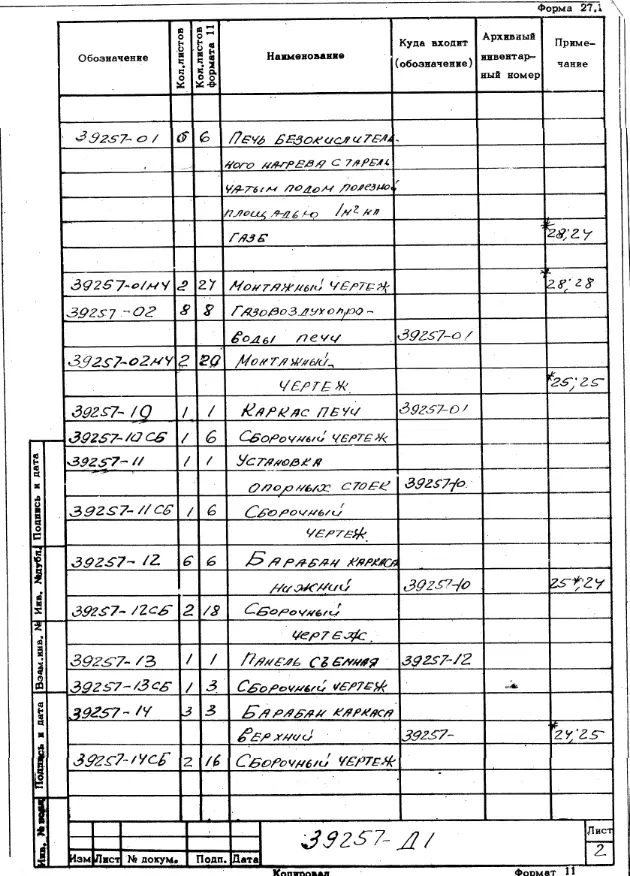 Форма 27.1
Обозначение Кол.листов Кол.листов формата 11 Наименование Куда входит (обозначение) Архивный инвентарный номер Примечание
39257-01 6 6 Печь безокислитель-
ного нагрева с тарель
чатым подом полезной
площадью 1м² на
газе *28;24
39257-01МЧ 2 27 Монтажный чертеж *28;28
39257-02 8 8 Газовоздухопро-
воды печи 39257-01
39257-02МЧ 2 20 Монтажный
чертеж *25;25
39257-10 1 1 Каркас печи 39257-01
39257-10СБ 1 6 Сборочный чертеж
39257-11 1 1 Установка
опорных стоек 39257-10
39257-11СБ 1 6 Сборочный
чертеж.
39257-12 6 6 Барабан каркаса
нижний 39257-10 25*;24
39257-12СБ 2 18 Сборочный
чертеж.
39257-13 1 1 Панель съемная 39257-12
39257-13СБ 1 3 Сборочный чертеж
39257-14 3 3 Барабан каркаса
верхний 39257- *24;25
39257-14СБ 2 16 Сборочный чертеж
Подпись и дата
Инв. №дубл.
Взам.инв. №
Подпись и дата
Инв. № подл
Изм Лист № докум. Подп. Дата
39257-Д1
Лист
2
Копировал Формат 11